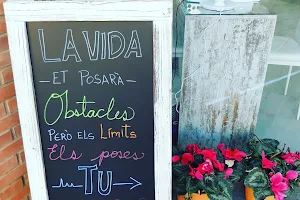 LA VIDA
ET POSARÀ
Obstacles
PERÒ ELS LÍMITS
Els poses
TU